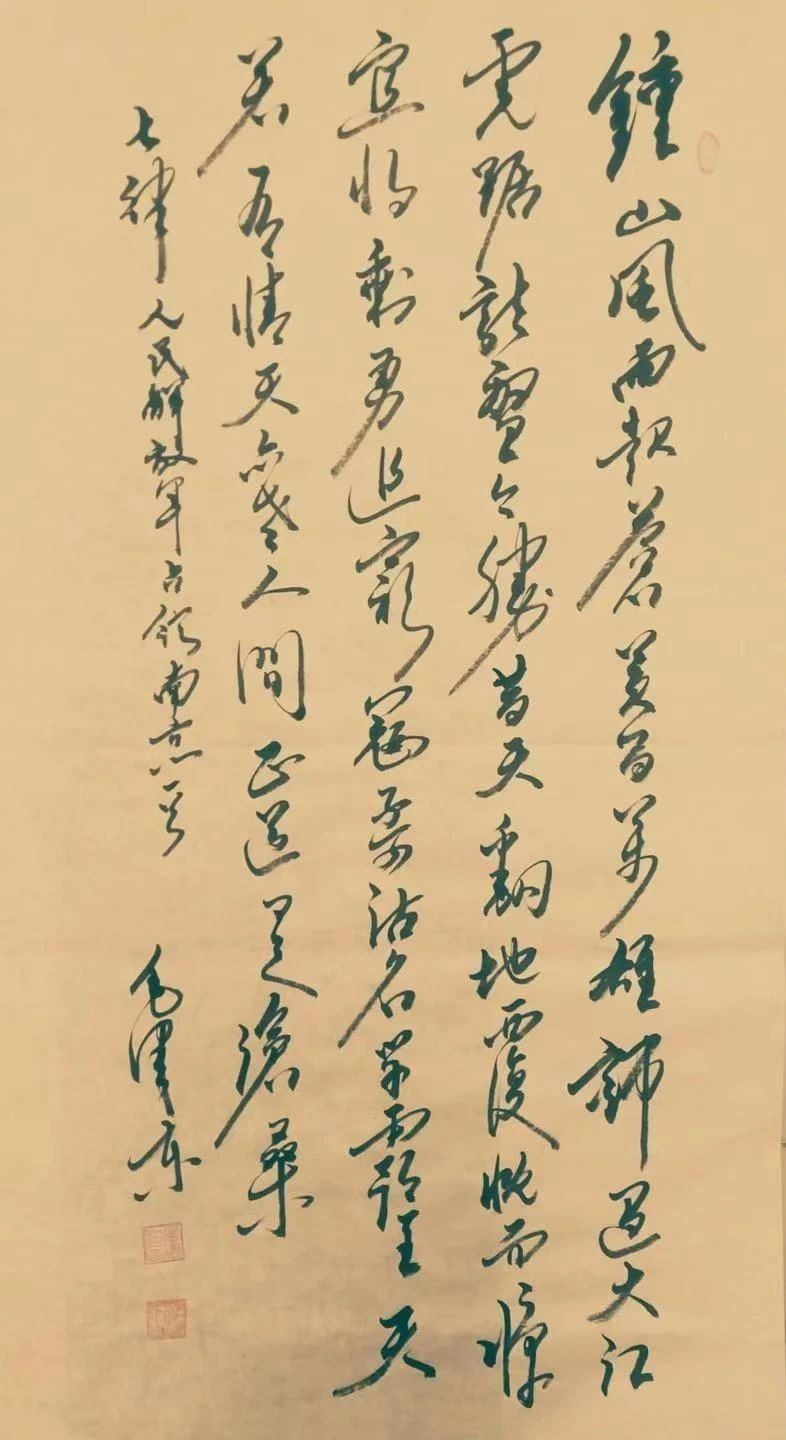 鍾山風雨起蒼黃百萬雄師過大江
虎踞龍盤今勝昔天翻地覆慨而慷
宜將剩勇追窮寇不可沽名學霸王天
若有情天亦老人間正道是滄桑
七律人民解放軍占領南京一首 毛澤東